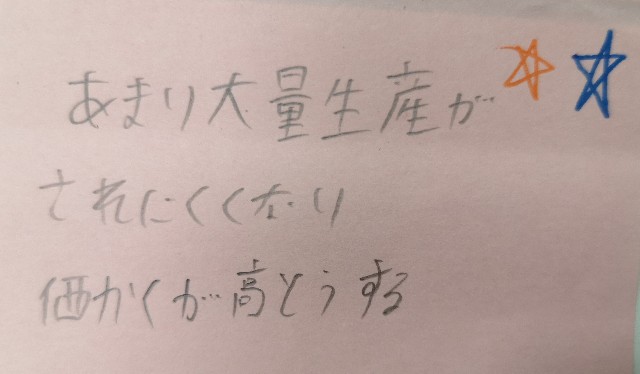 あまり大量生産が
されにくくなり
価かくが高とうする